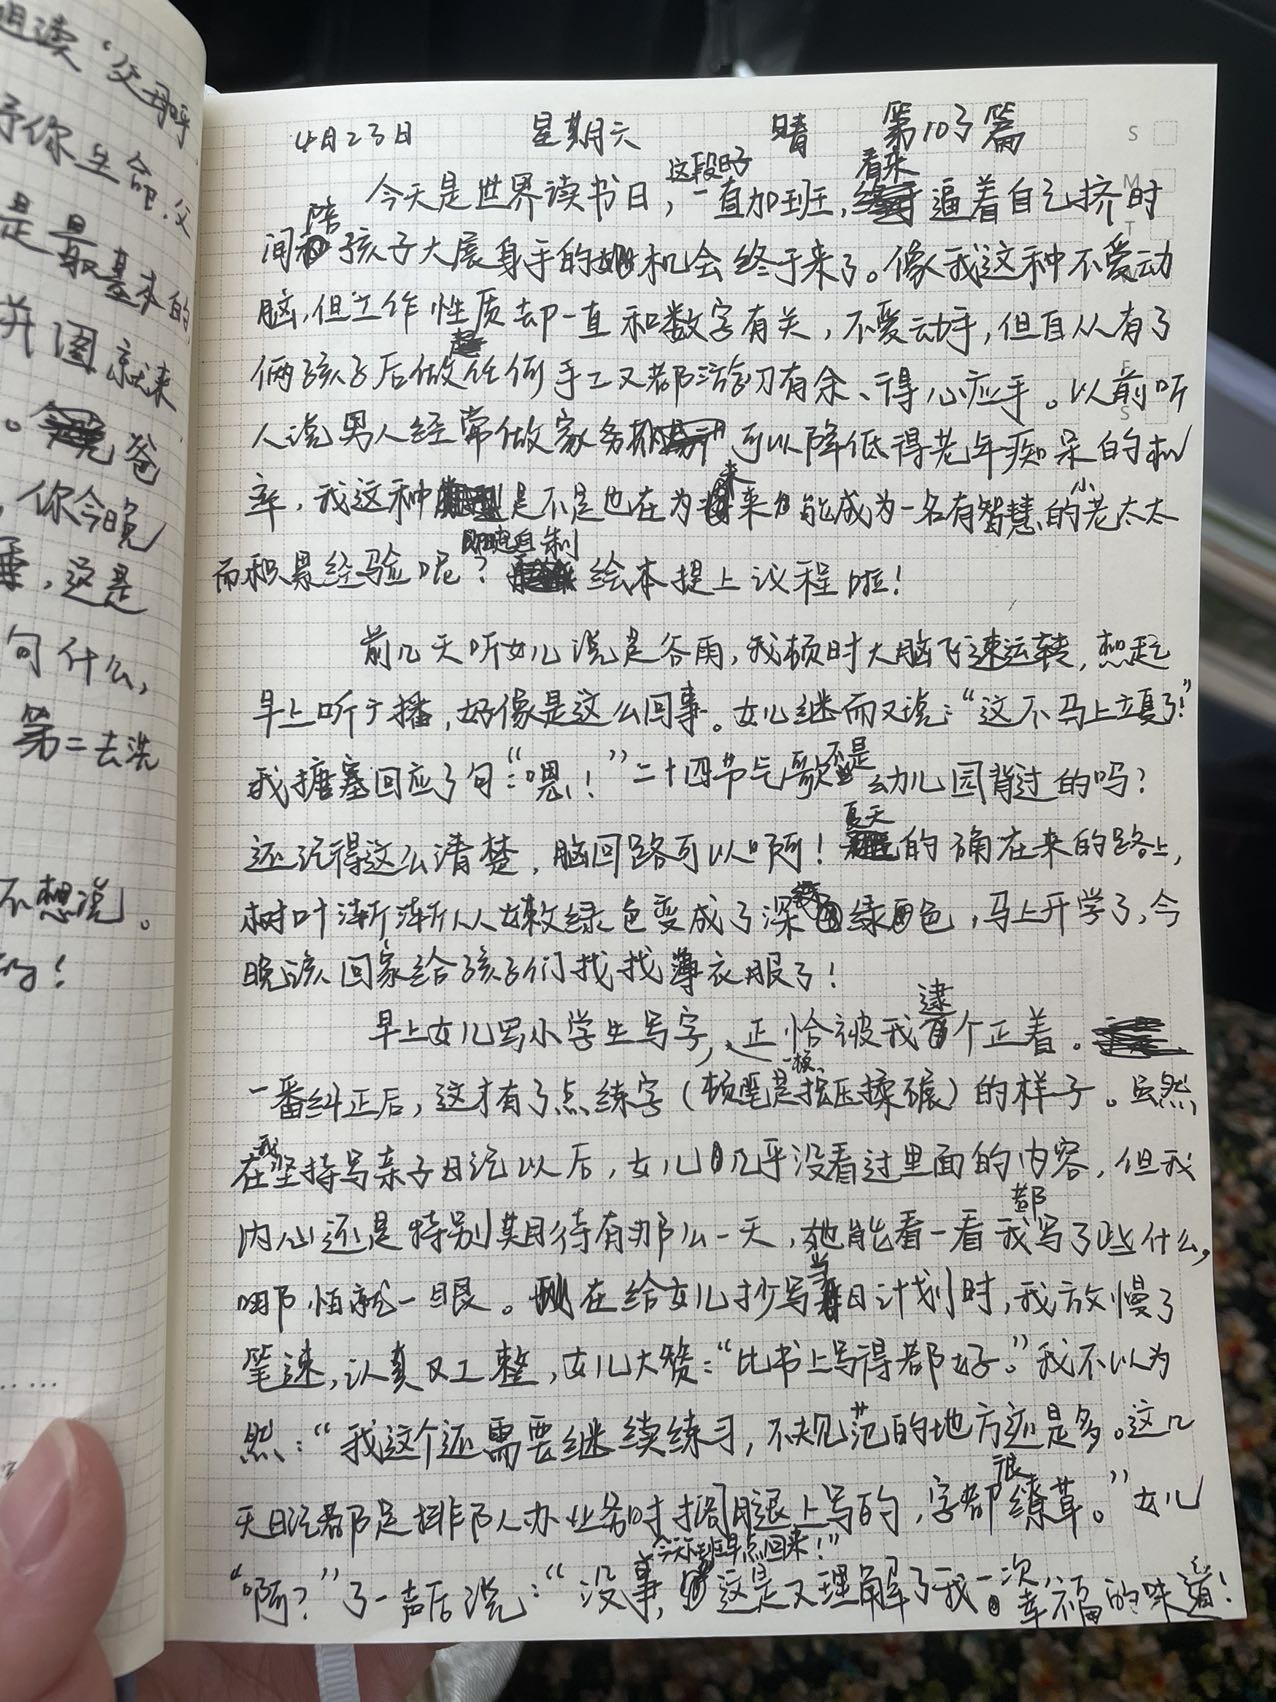 迅读“父母呼
予你生命，父
是最基本的
并图 就来
。爸
，你今晚
垂，这是
句什么，
第二去洗
不想说。
4月23日 星期六 晴 第103篇
今天是世界读书日，这段日子一直加班，看来逼着自己挤时
间陪孩子大展身手的机会终于来了。像我这种不爱动
脑，但工作性质却一直和数字有关，不爱动手，但自从有了
俩孩子后做起任何手工又都游刃有余、得心应手。以前听
人说男人经常做家务可以降低得老年痴呆的机
率，我这种是不是也在为未来能成为一名有智慧的小老太太
而积累经验呢？明晚自制绘本提上议程啦！
前几天听女儿说是谷雨，我顿时大脑飞速运转，想起
早上听广播，好像是这么回事。女儿继而又说：“这不马上立夏了！”
我搪塞回应了句：“嗯！”二十四节气歌不是幼儿园背过的吗？
还记得这么清楚，脑回路可以啊！夏天的确在来的路上，
树叶渐渐从嫩绿色变成了深绿色，马上开学了，今
晚该回家给孩子们找找薄衣服了！
早上女儿写小学生写字，正恰被我逮个正着。
一番纠正后，这才有了点练字（顿笔是一按、按压揉碾）的样子。虽然
在我坚持写亲子日记以后，女儿几乎没看过里面的内容，但我
内心还是特别期待有那么一天，她能看一看我都写了些什么，
哪怕就一眼。在给女儿抄写当日计划时，我放慢了
笔速，认真又工整，女儿大赞：“比书上写得都好。”我不以为
然：“我这个还需要继续练习，不规范的地方还是多。这几
天日记都是排队人办业务时搁腿上写的，字都很潦草。”女儿
“啊？”了一声后说：“没事，今天下班早点回来！”这是又理解了我一次，幸福的味道！